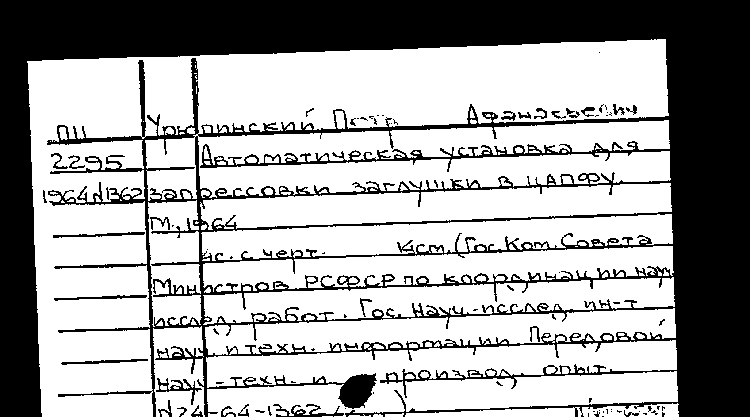 ПЦ Урюпинский, Петр Афанасьевич
2295 Автоматическая установка для
1964 N1362 запрессовки заглушки в цапфу.
М., 1964
4с. с черт. 14см. (Гос. Ком. Совета
Министров РСФСР по координации науч.
исслед. работ. Гос. Науч.-исслед. ин-т
науч. и техн. информации. Передовой
науч-техн. и производ. опыт.
N24-64-1362